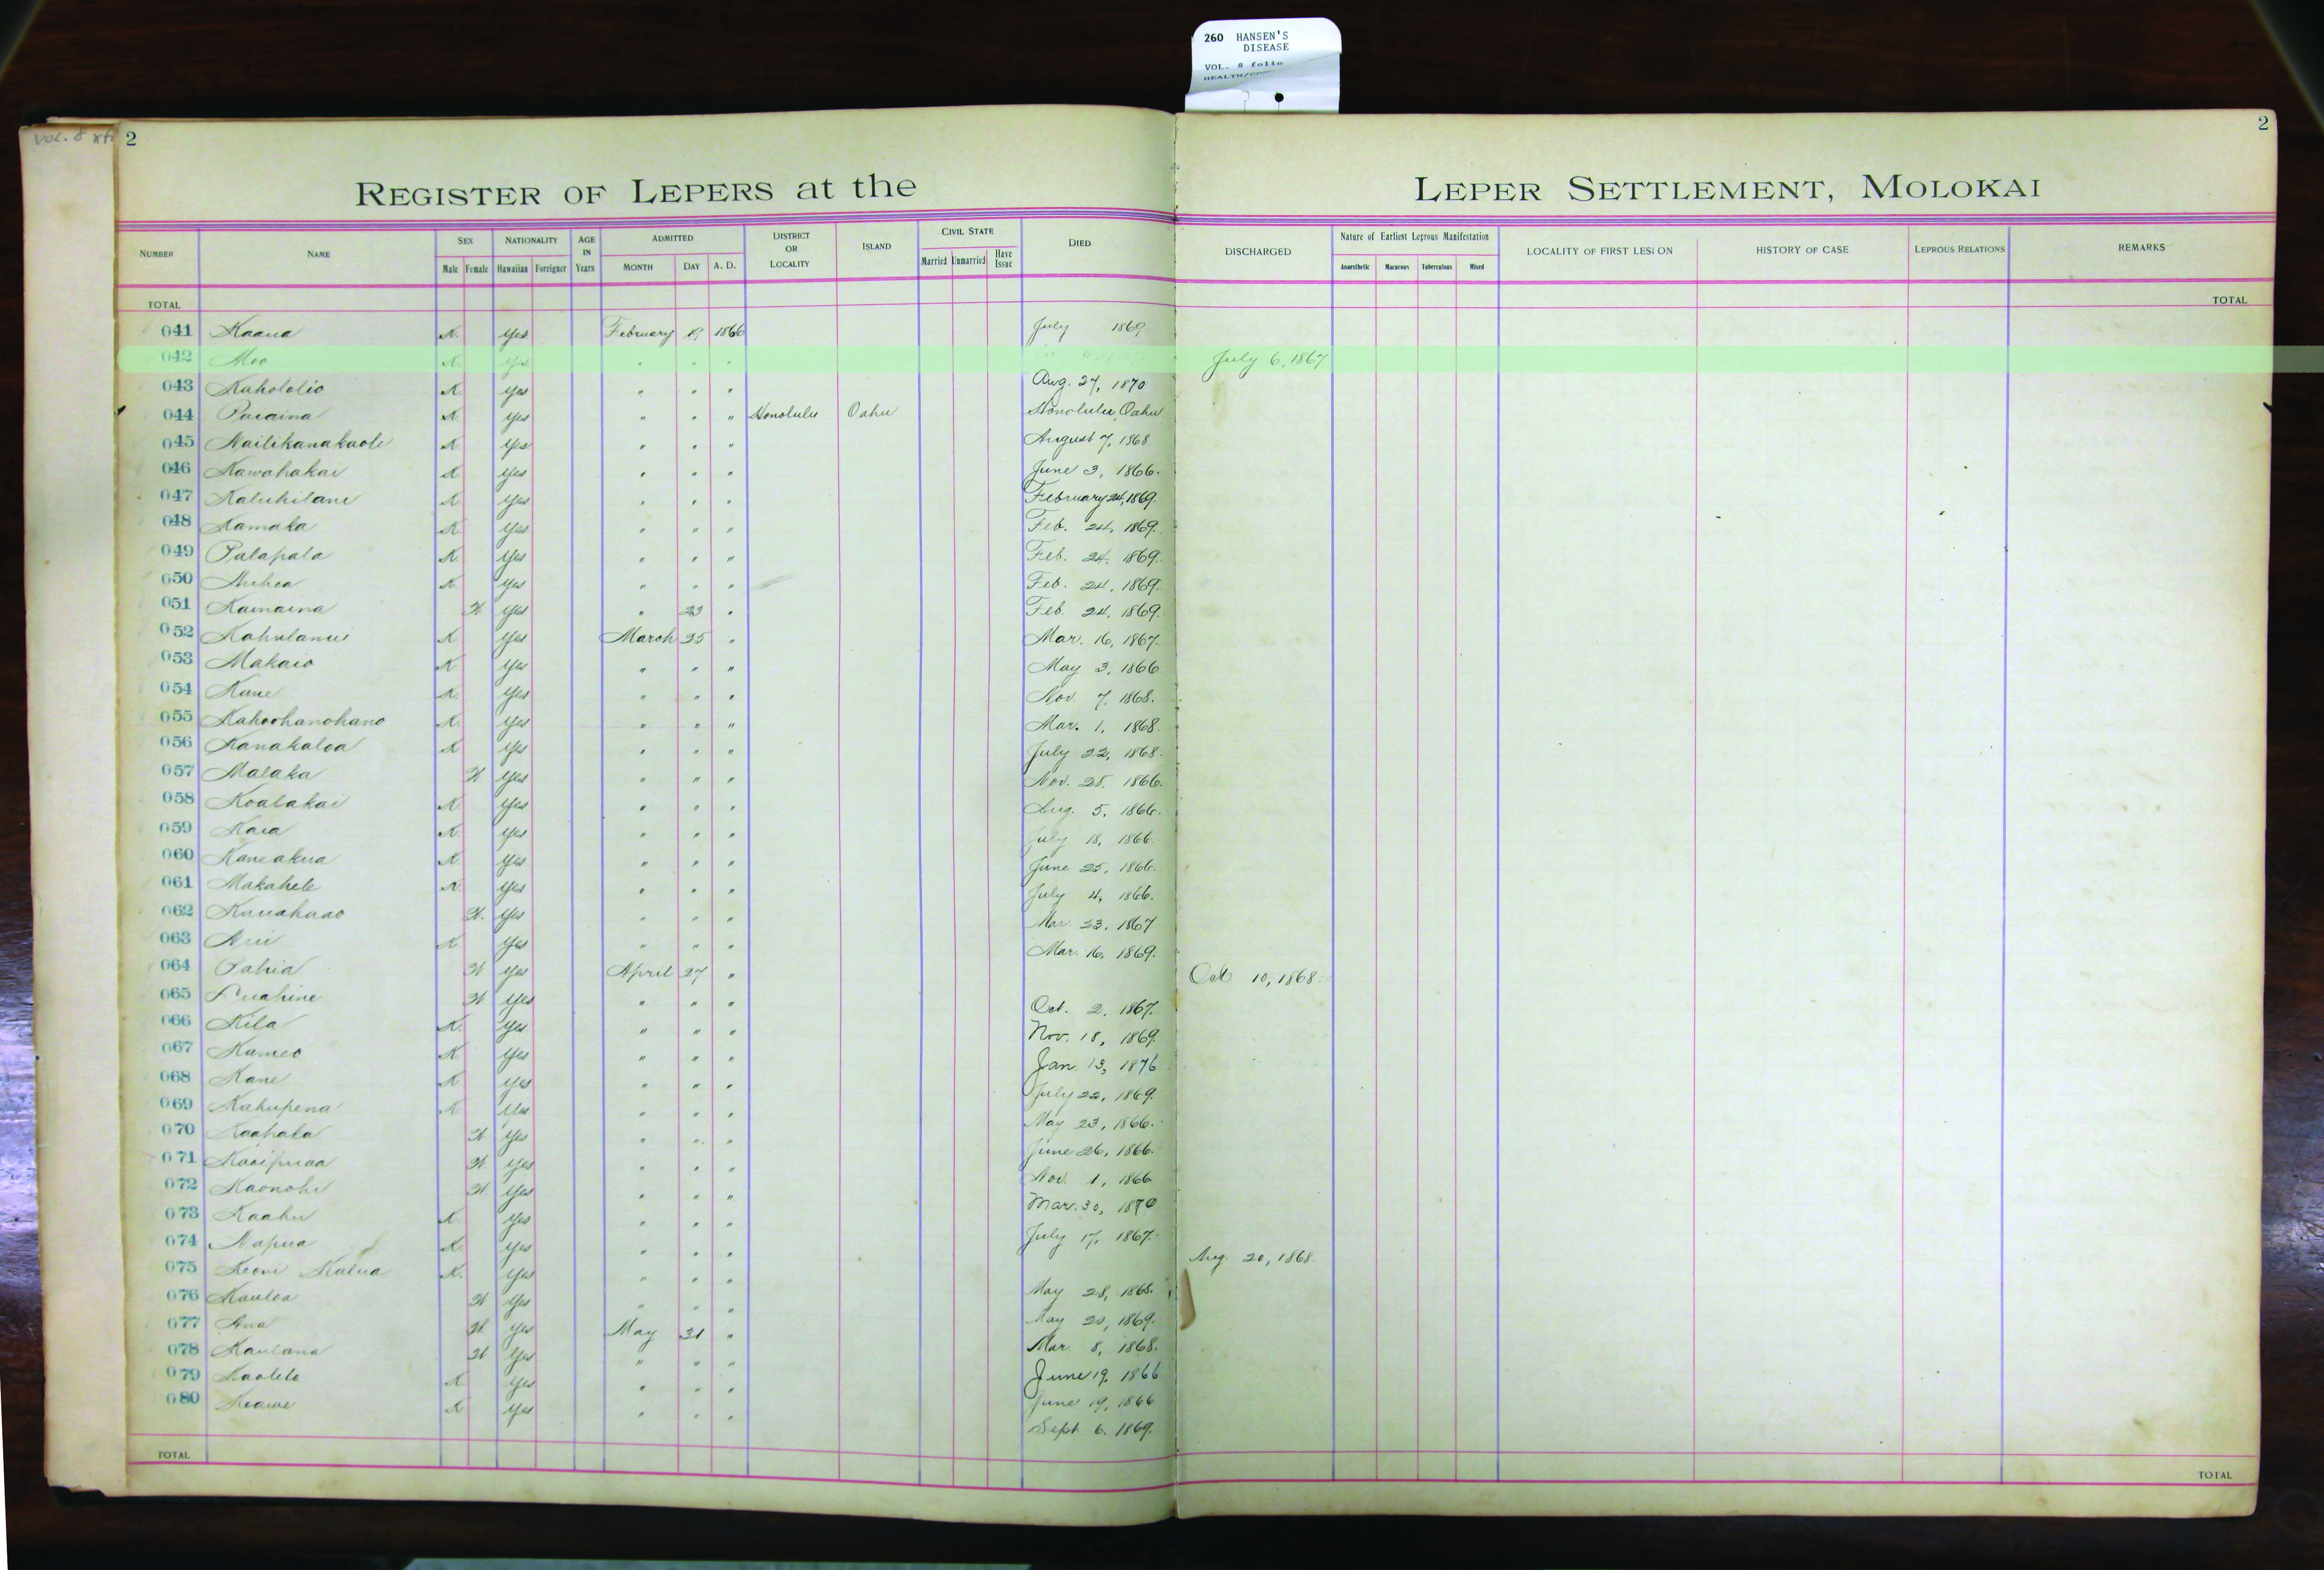 260 HANSEN'S
DISEASE
VOL. 8 folio
Vol. 8
2
2
REGISTER OF LEPERS at the LEPER SETTLEMENT, MOLOKAI
NUMBER NAME SEX NATIONALITY AGE IN Years ADMITTED DISTRICT OR LOCALITY ISLAND CIVIL STATE DIED DISCHARGED Nature of Earliest Leprous Manifestation LOCALITY OF FIRST LESION HISTORY OF CASE LEPROUS RELATIONS REMARKS
Male Female Hawaiian Foreigner MONTH DAY A. D. Married Unmarried Have Issue Anaesthetic Macurous Tuberculous Mixed
TOTAL TOTAL
041 Kaaua K. Yes February 19 1866 July 1869
042 Moo K. Yes " " " July 6, 1867
043 Kahololio K Yes " " " Aug. 27, 1870
044 Paiaina K Yes " " " Honolulu Oahu Honolulu, Oahu
045 Nailikanakaole K Yes " " " August 7, 1868
046 Kawahakai K Yes " " " June 3, 1866.
047 Kaluhilani K Yes " " " February 24, 1869.
048 Kamaka K Yes " " " Feb. 24, 1869.
049 Palapala K. Yes " " " Feb. 24, 1869.
050 Auhea K. Yes " " " Feb. 24, 1869.
051 Kamaina W Yes " 23 " Feb. 24, 1869.
052 Kahulanui K Yes March 25 " Mar. 16, 1867.
053 Makaio K Yes " " " May 3, 1866
054 Kane K. Yes " " " Nov. 7, 1868.
055 Kahoohanohano K. Yes " " " Mar. 1, 1868
056 Kanakaloa K Yes " " " July 22, 1868.
057 Malaka W Yes " " " Nov. 28, 1866.
058 Koalakai K Yes " " " Aug. 5, 1866.
059 Kaia K. Yes " " " July 18, 1866
060 Kaneakua K Yes " " " June 25, 1866.
061 Makahele K. Yes " " " July 4, 1866.
062 Kauahaao W. Yes " " " Mar. 23, 1867
063 K Yes " " " Mar. 16, 1869.
064 Pahia W Yes April 27 " Oct 10, 1868.
065 Luahine W Yes " " " Oct. 2, 1867.
066 Kila K. Yes " " " Nov. 18, 1869.
067 Kameo K Yes " " " Jan. 13, 1876
068 Kane K Yes " " " July 22, 1869.
069 Kahupena K Yes " " " May 23, 1866.
070 Kaahala W Yes " " " June 26, 1866.
071 Kaaipuaa W. Yes " " " Nov. 1, 1866
072 Kaonohi W Yes " " " Mar. 30, 1870
073 Kaahu K. Yes " " " July 17, 1867.
074 Napua K. Yes " " " Aug. 20, 1868.
075 Keoni Kalua K. Yes " " " May 28, 1868.
076 Kauloa W Yes " " " May 20, 1869.
077 Ana W. Yes May 31 " Mar. 8, 1868.
078 Kaulana W Yes " " " June 19, 1866
079 Kaolelo K. Yes " " " June 19, 1866
080 Keawe K Yes " " " Sept. 6, 1869.
TOTAL TOTAL